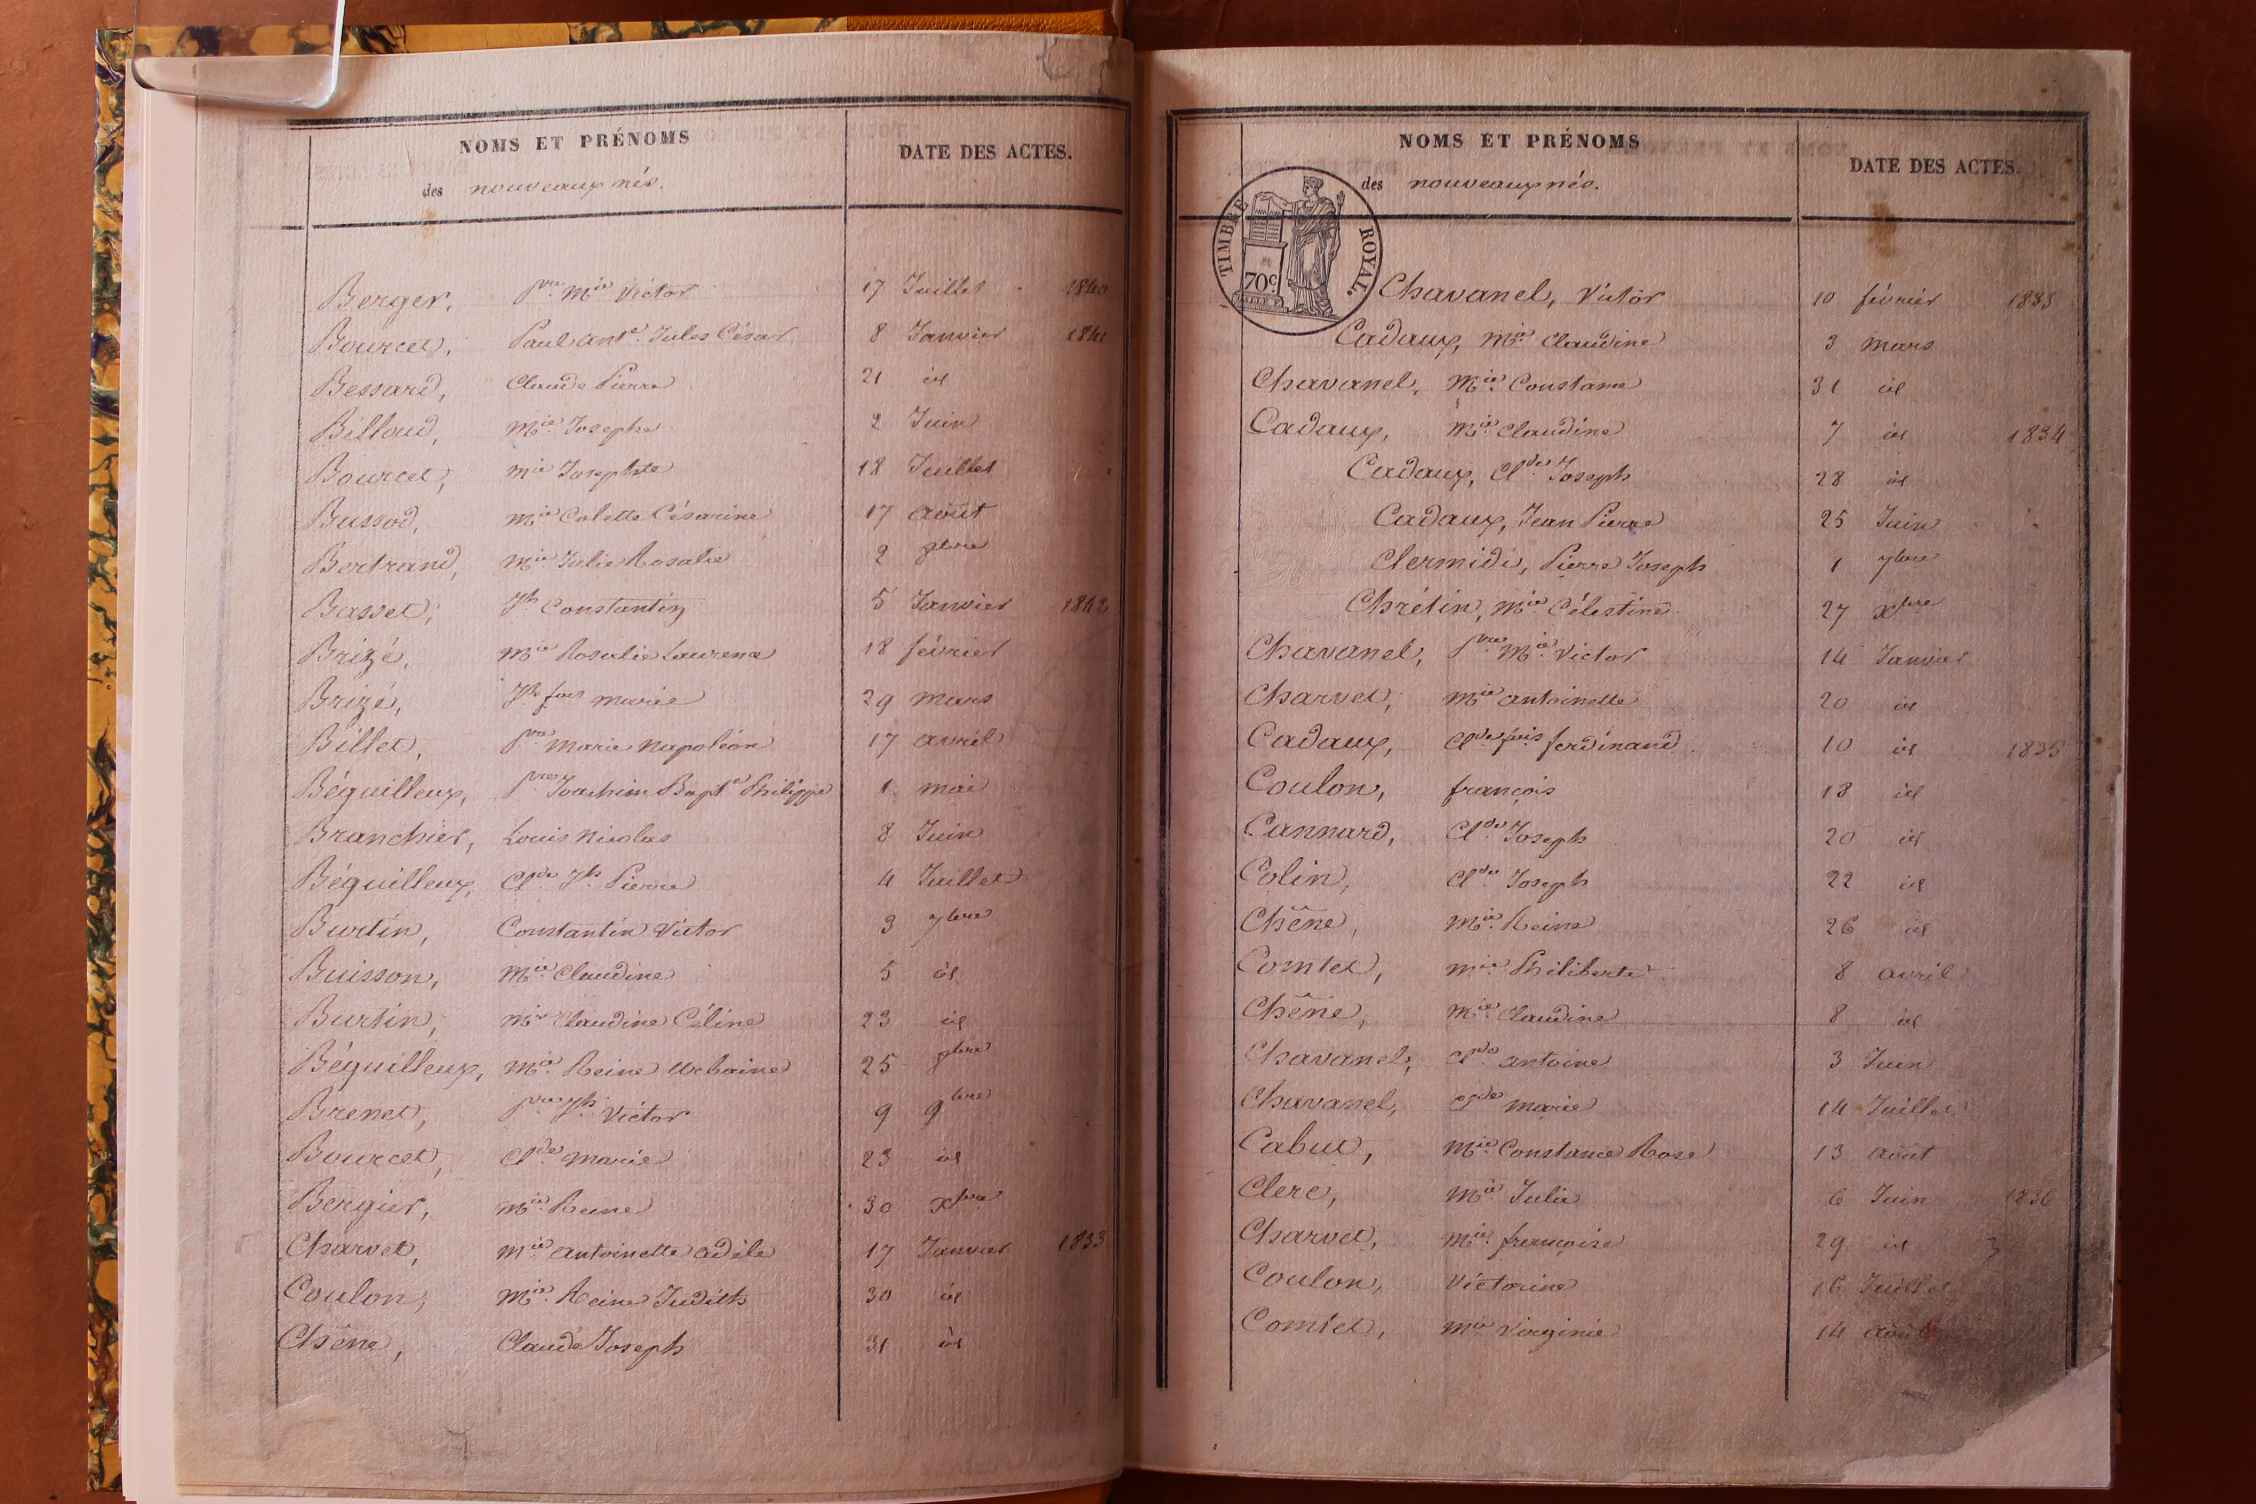 NOMS ET PRÉNOMS
des nouveaux nés.
DATE DES ACTES.
Berger, Pre Mie Victor 17 Juillet 1840
Bourcet, Paul Ante Jules César 8 Janvier 1841
Bessard, Claude Pierre 21 id
Billoud, Mie Josephe 2 Juin
Bourcet, Mie Josephte 18 Juillet
Bussod, Mie Colette Césarine 17 août
Bertrand, Mie Julie Rosalie 2 9bre
Basset, Jh Constantin 5 Janvier 1842
Brizé, Mie Rosalie Laurence 18 février
Brizé, Jh fois marie 29 mars
Billet, Pre Marie Napoléon 17 avril
Béguilleux, Pre Joachim Bapte Philippe 1 mai
Branchier, Louis Nicolas 8 Juin
Béguilleux, Clde Jh Pierre 4 Juillet
Burtin, Constantin Victor 3 7bre
Buisson, Mie Claudine 5 id
Burtin, Mie Claudine Céline 23 id
Béguilleux, Mie Reine Urbaine 25 8bre
Brenet, Pre Jh Victor 9 9bre
Bourcet, Clde Marie 23 id
Bergier, Mie Reine 30 Xbre
Charvet, Mie antoinette adèle 17 Janvier 1833
Coulon, Mie Reine Judith 30 id
Chêne, Claude Joseph 31 id
NOMS ET PRÉNOMS
des nouveaux nés.
DATE DES ACTES.
TIMBRE ROYAL.
70c
Chavanel, Victor 10 février 1833
Cadaux, Mie Claudine 3 mars
Chavanel, Mie Constance 31 id
Cadaux, Mie Claudine 7 id 1834
Cadaux, Clde Joseph 28 id
Cadaux, Jean Pierre 25 Juin
Clermidi, Pierre Joseph 1 7bre
Chrétin, Mie Célestine 27 Xbre
Chavanel, Pre Mie Victor 14 Janvier
Charvet, Mie antoinette 20 id
Cadaux, Clde fois ferdinand 10 id 1835
Coulon, françois 18 id
Cannard, Clde Joseph 20 id
Colin, Clde Joseph 22 id
Chêne, Mie Reine 26 id
Comtet, Mie Philiberte 8 avril
Chêne, Mie Claudine 8 id
Chavanel, Clde antoine 3 Juin
Chavanel, Clde marie 14 Juillet
Cabut, Mie Constance Rose 13 août
Clerc, Mie Julie 6 Juin 1836
Charvet, Mie françoise 29 id
Coulon, Victorine 16 Juillet
Comtet, Mie Virginie 14 août